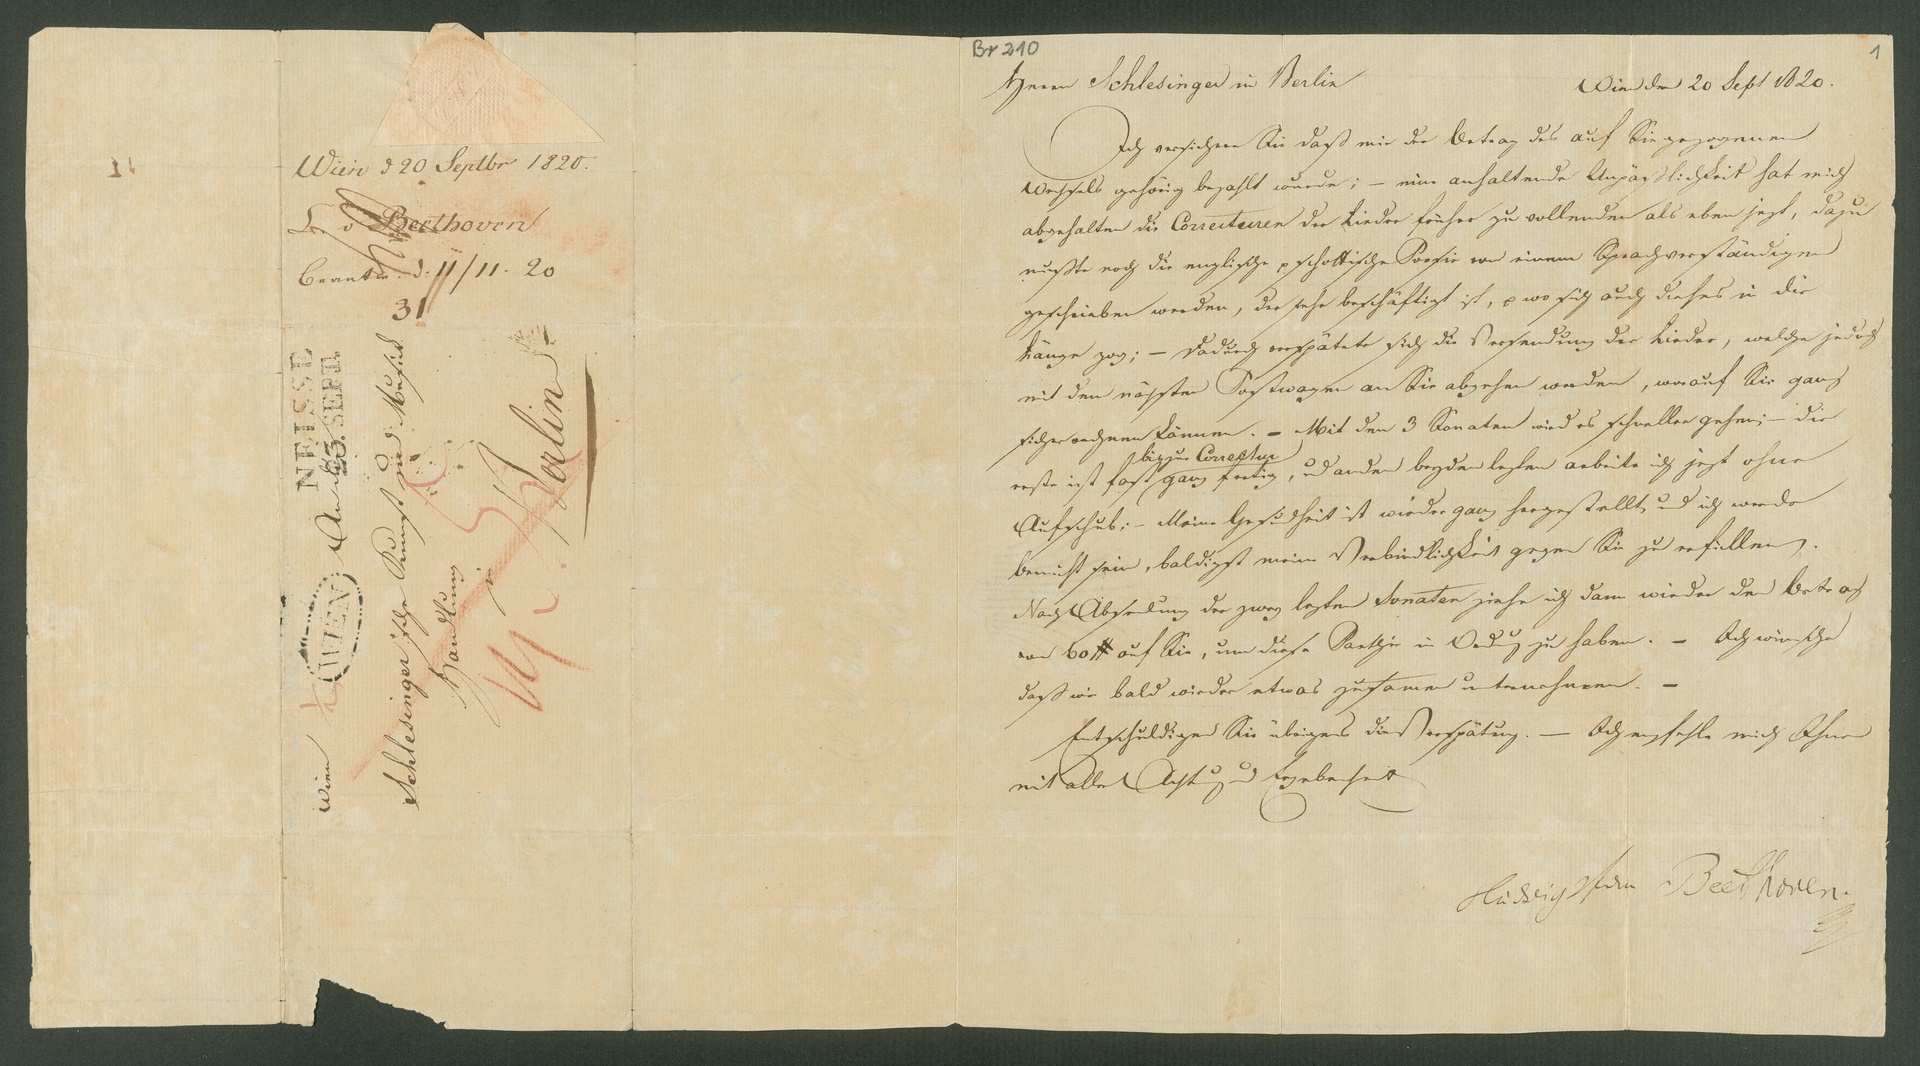 Wien d 20 Septbr 1820.
L v Beethoven
beantw. d. 11/11. 20
31
NEISSE
23. SEPT.
WIEN
Wien
An die
Schlesinger'sche Kunst und Musik
Handlung
in
Berlin
Br 210
1
Herrn Schlesinger in Berlin
Wien den 20 Sept 1820.
Ich versichere Sie daß mir der Betrag des auf Sie gezogenen
Wechsels gehörig bezahlt wurde; – eine anhaltende Unpäßlichkeit hat mich
abgehalten die Correcturen der Lieder früher zu vollenden als eben jezt, dazu
mußte noch die englische u schottische Poesie von einem Sprachverständigen
geschrieben werden, der sehr beschäftigt ist, u wo sich auch dieses in die
Länge zog; – dadurch verspätete sich die Versendung der Lieder, welche jedoch
mit dem nächsten Postwagen an Sie abgehen werden, worauf Sie ganz
sicher rechnen können. – Mit den 3 Sonaten wird es schneller gehen; – die
bis zur Correctur
erste ist fast ganz fertig, und an den beyden lezten arbeite ich jezt ohne
Aufschub. – Meine Gesundheit ist wieder ganz hergestellt, und ich werde
bemüht sein, baldigst meine Verbindlichkeit gegen Sie zu erfüllen.
Nach Absendung der zwey lezten Sonaten ziehe ich dann wieder den Betrag
von 60 # auf Sie, um diese Parthie in Ordnung zu haben. – Ich wünsche
daß wir bald wieder etwas zusamen unternehmen. –
Entschuldigen Sie übrigens die Verspätung. – Ich empfehle mich Ihnen
mit aller Achtung und Ergebenheit
Ludwig van Beethoven.